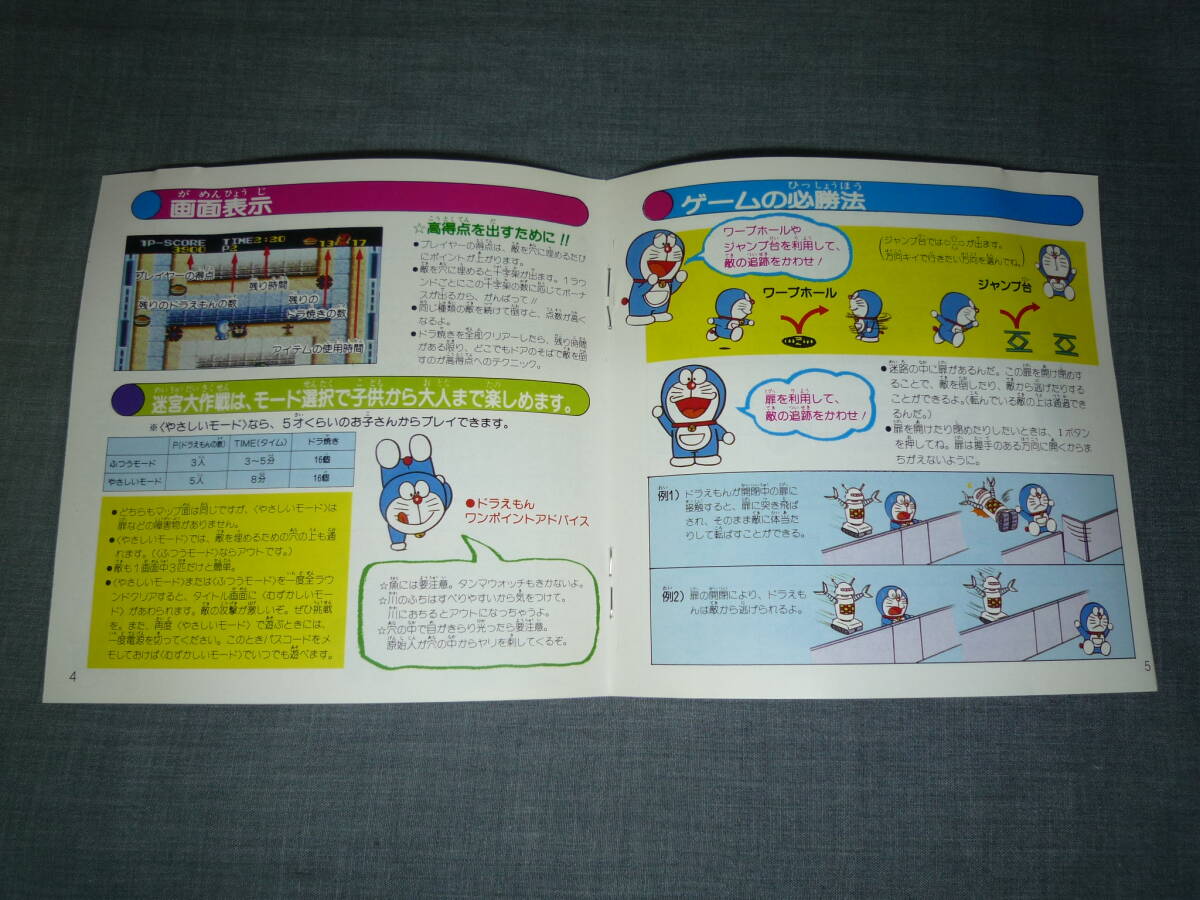 画面表示
1P-SCORE TIME2:20 13/17
3900 P2
プレイヤーの得点
残り時間
残りのドラえもんの数
残りの
ドラ焼きの数
アイテムの使用時間
☆高得点を出すために!!
●プレイヤーの得点は、敵を穴に埋めるたび
にポイントが上がります。
●敵を穴に埋めると十字架が出ます。1ラウ
ンドごとにこの十字架の数に応じてボーナ
スが出るから、がんばって!!
●同じ種類の敵を続けて倒すと、点数が高く
なるよ。
●ドラ焼きを全部クリアーしたら、残り時間
がある限り、どこでもドアのそばで敵を倒
すのが高得点へのテクニック。
迷宮大作戦は、モード選択で子供から大人まで楽しめます。
※〈やさしいモード〉なら、5才くらいのお子さんからプレイできます。
P(ドラえもんの数) TIME(タイム) ドラ焼き
ふつうモード 3人 3〜5分 16個
やさしいモード 5人 8分 16個
●どちらもマップ面は同じですが、〈やさしいモード〉は
扉などの障害物がありません。
●〈やさしいモード〉では、敵を埋めるための穴の上も通
れます。(〈ふつうモード〉ならアウトです。)
●敵も1画面中3匹だけと簡単。
●〈やさしいモード〉または〈ふつうモード〉を一度全ラウ
ンドクリアすると、タイトル画面に〈むずかしいモー
ド〉があわられます。敵の攻撃が激しいぞ。ぜひ挑戦
を。また、再度〈やさしいモード〉で遊ぶときには、
一度電源を切ってください。このときパスコードをメ
モしておけば〈むずかしいモード〉でいつでも遊べます。
●ドラえもん
ワンポイントアドバイス
☆魚には要注意。タンマウォッチもきかないよ。
☆川のふちはすべりやすいから気をつけて。
川におちるとアウトになっちゃうよ。
☆穴の中で目がきらり光ったら要注意。
原始人が穴の中からヤリを刺してくるぞ。
4
ゲームの必勝法
ワープホールや
ジャンプ台を利用して、
敵の追跡をかわせ!
ワープホール
方向キイで行きたい方向を選んでね。
ジャンプ台
扉を利用して、
敵の追跡をかわせ!
●迷路の中に扉があるんだ。この扉を開け閉めす
ることで、敵を倒したり、敵から逃げたりする
ことができるよ。(転んでいる敵の上は通過でき
るんだ。)
●扉を開けたり閉めたりしたいときは、1ボタン
を押してね。扉は握手のある方向に開くからま
ちがえないように。
例1) ドラえもんが開閉中の扉に
接触すると、扉に突き飛ば
され、そのまま敵に体当た
りして転ばすことができる。
例2) 扉の開閉により、ドラえも
んは敵から逃げられるよ。
5